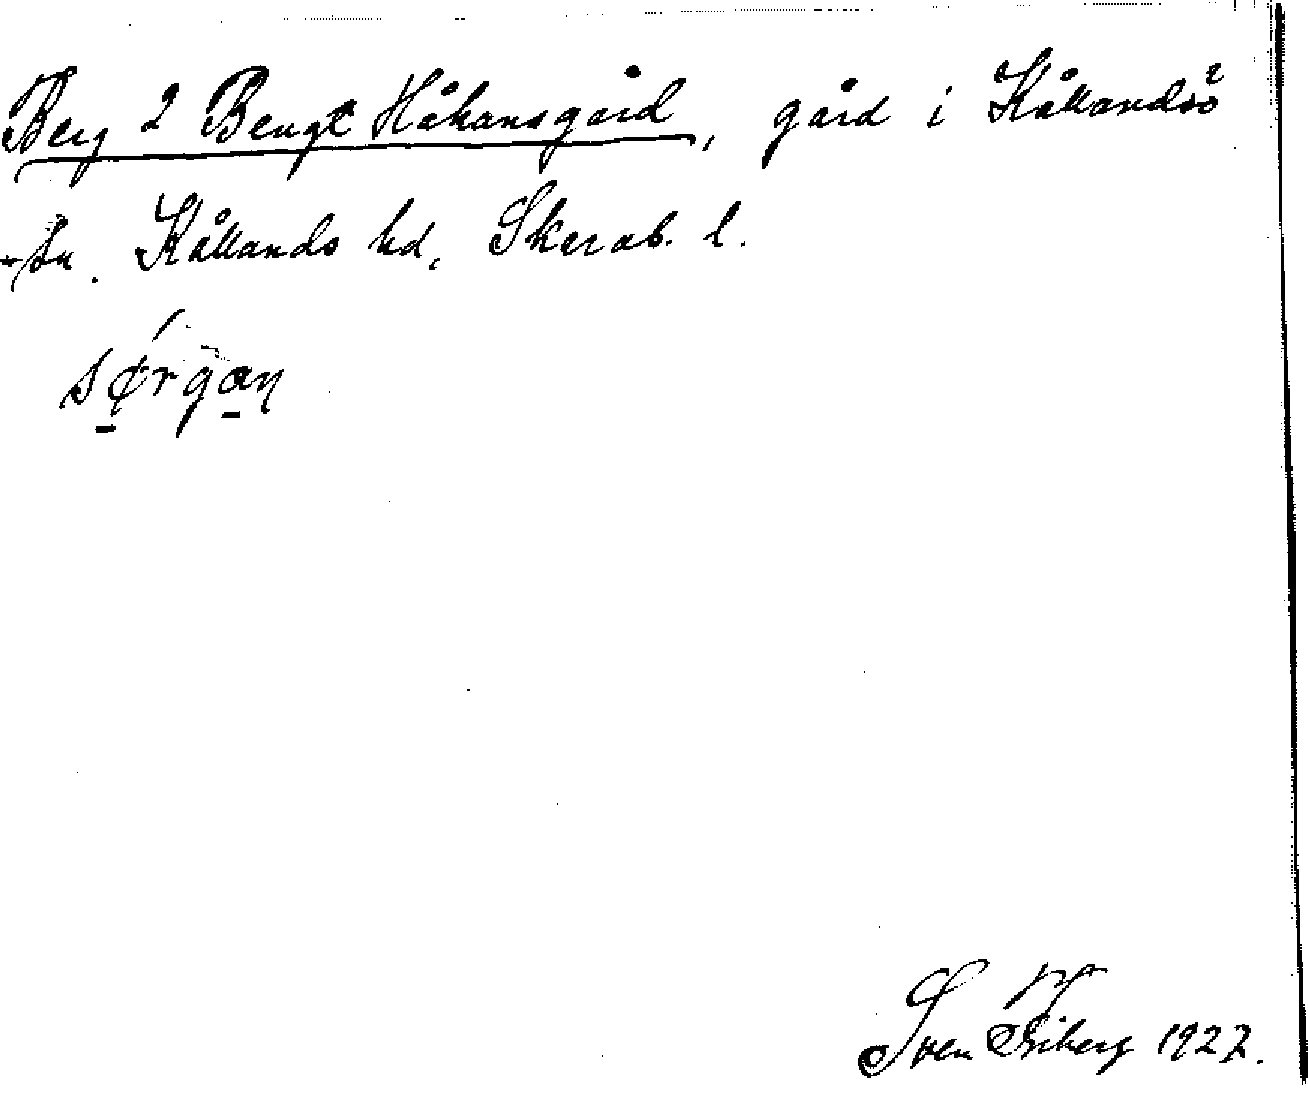 Berg 2 Bengt Håkansgård, gård i Kållandsö
sn. Kållands hd, Skarab. l.
sørgan
Sven 1927.